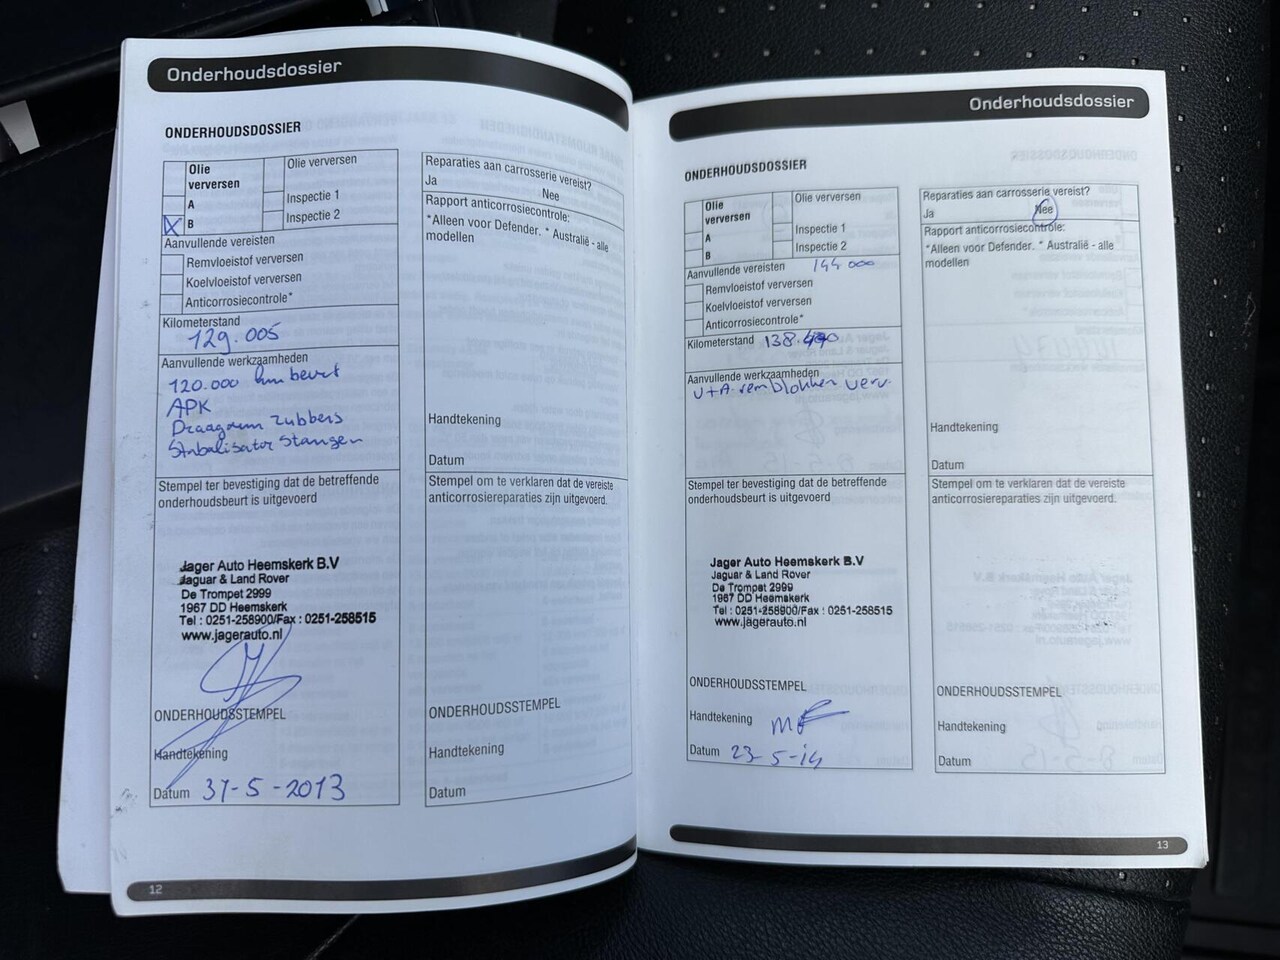 Onderhoudsdossier
ONDERHOUDSDOSSIER
Olie verversen
A
B
Olie verversen
Inspectie 1
Inspectie 2
Aanvullende vereisten
Remvloeistof verversen
Koelvloeistof verversen
Anticorrosiecontrole*
Kilometerstand
129.005
Aanvullende werkzaamheden
120.000 km beurt
APK
Draagarm rubbers
Stabalisator Stangen
Stempel ter bevestiging dat de betreffende
onderhoudsbeurt is uitgevoerd
Jager Auto Heemskerk B.V
Jaguar & Land Rover
De Trompet 2999
1967 DD Heemskerk
Tel : 0251-258900/Fax : 0251-258515
www.jagerauto.nl
ONDERHOUDSSTEMPEL
Handtekening
Datum 31-5-2013
Reparaties aan carrosserie vereist?
Ja Nee
Rapport anticorrosiecontrole:
*Alleen voor Defender. * Australië - alle
modellen
Handtekening
Datum
Stempel om te verklaren dat de vereiste
anticorrosiereparaties zijn uitgevoerd.
ONDERHOUDSSTEMPEL
Handtekening
Datum
12
Onderhoudsdossier
ONDERHOUDSDOSSIER
Olie verversen
A
B
Olie verversen
Inspectie 1
Inspectie 2
Aanvullende vereisten 144000
Remvloeistof verversen
Koelvloeistof verversen
Anticorrosiecontrole*
Kilometerstand 138.490
Aanvullende werkzaamheden
V+A remblokken verv.
Stempel ter bevestiging dat de betreffende
onderhoudsbeurt is uitgevoerd
Jager Auto Heemskerk B.V
Jaguar & Land Rover
De Trompet 2999
1967 DD Heemskerk
Tel : 0251-258900/Fax : 0251-258515
www.jagerauto.nl
ONDERHOUDSSTEMPEL
Handtekening
Datum 23-5-14
Reparaties aan carrosserie vereist?
Ja Nee
Rapport anticorrosiecontrole:
*Alleen voor Defender. * Australië - alle
modellen
Handtekening
Datum
Stempel om te verklaren dat de vereiste
anticorrosiereparaties zijn uitgevoerd.
ONDERHOUDSSTEMPEL
Handtekening
Datum
13